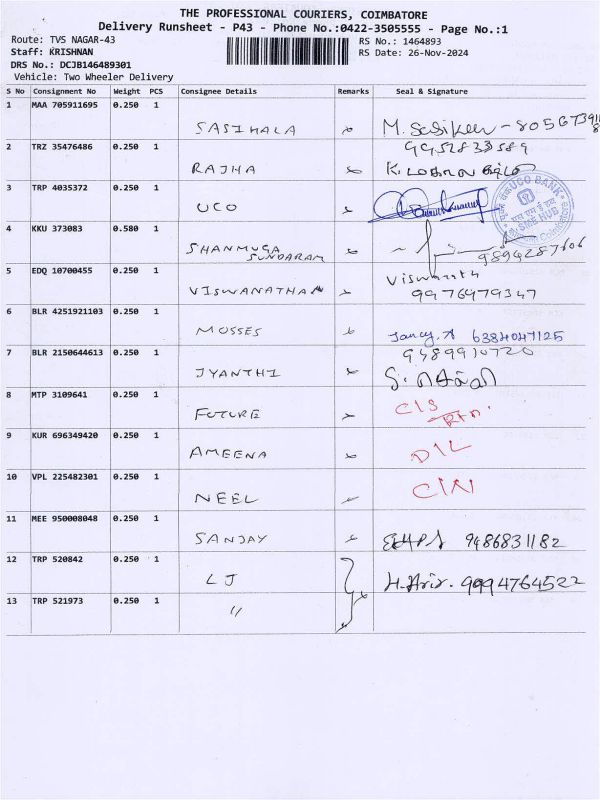 THE PROFESSIONAL COURIERS, COIMBATORE
Delivery Runsheet - P43 - Phone No.:0422-3505555 - Page No.:1
Route: TVS NAGAR-43
Staff: KRISHNAN
DRS No.: DCJB146489301
Vehicle: Two Wheeler Delivery
RS No.: 1464893
RS Date: 26-Nov-2024
S No Consignment No Weight PCS Consignee Details Remarks Seal & Signature
1 MAA 705911695 0.250 1
SASIHALA
2 TRZ 35476486 0.250 1 9952833589
RAJHA
3 TRP 4035372 0.250 1
UCO
UCO BANK
SME HUB
4 KKU 373083 0.580 1
SHANMUGA
SUNDARAM 9894287606
5 EDQ 10700455 0.250 1 Viswanath
VISWANATHAN 9976479347
6 BLR 4251921103 0.250 1
MOSSES Jancy. A 6384047125
7 BLR 2150644613 0.250 1 9489910720
JYANTHI
8 MTP 3109641 0.250 1 CIS
FUTURE
9 KUR 696349420 0.250 1
AMEENA DIL
10 VPL 225482301 0.250 1
NEEL CIN
11 MEE 950008048 0.250 1
SANJAY 9486831182
12 TRP 520842 0.250 1
LJ H. Aris. 9994764522
13 TRP 521973 0.250 1
"